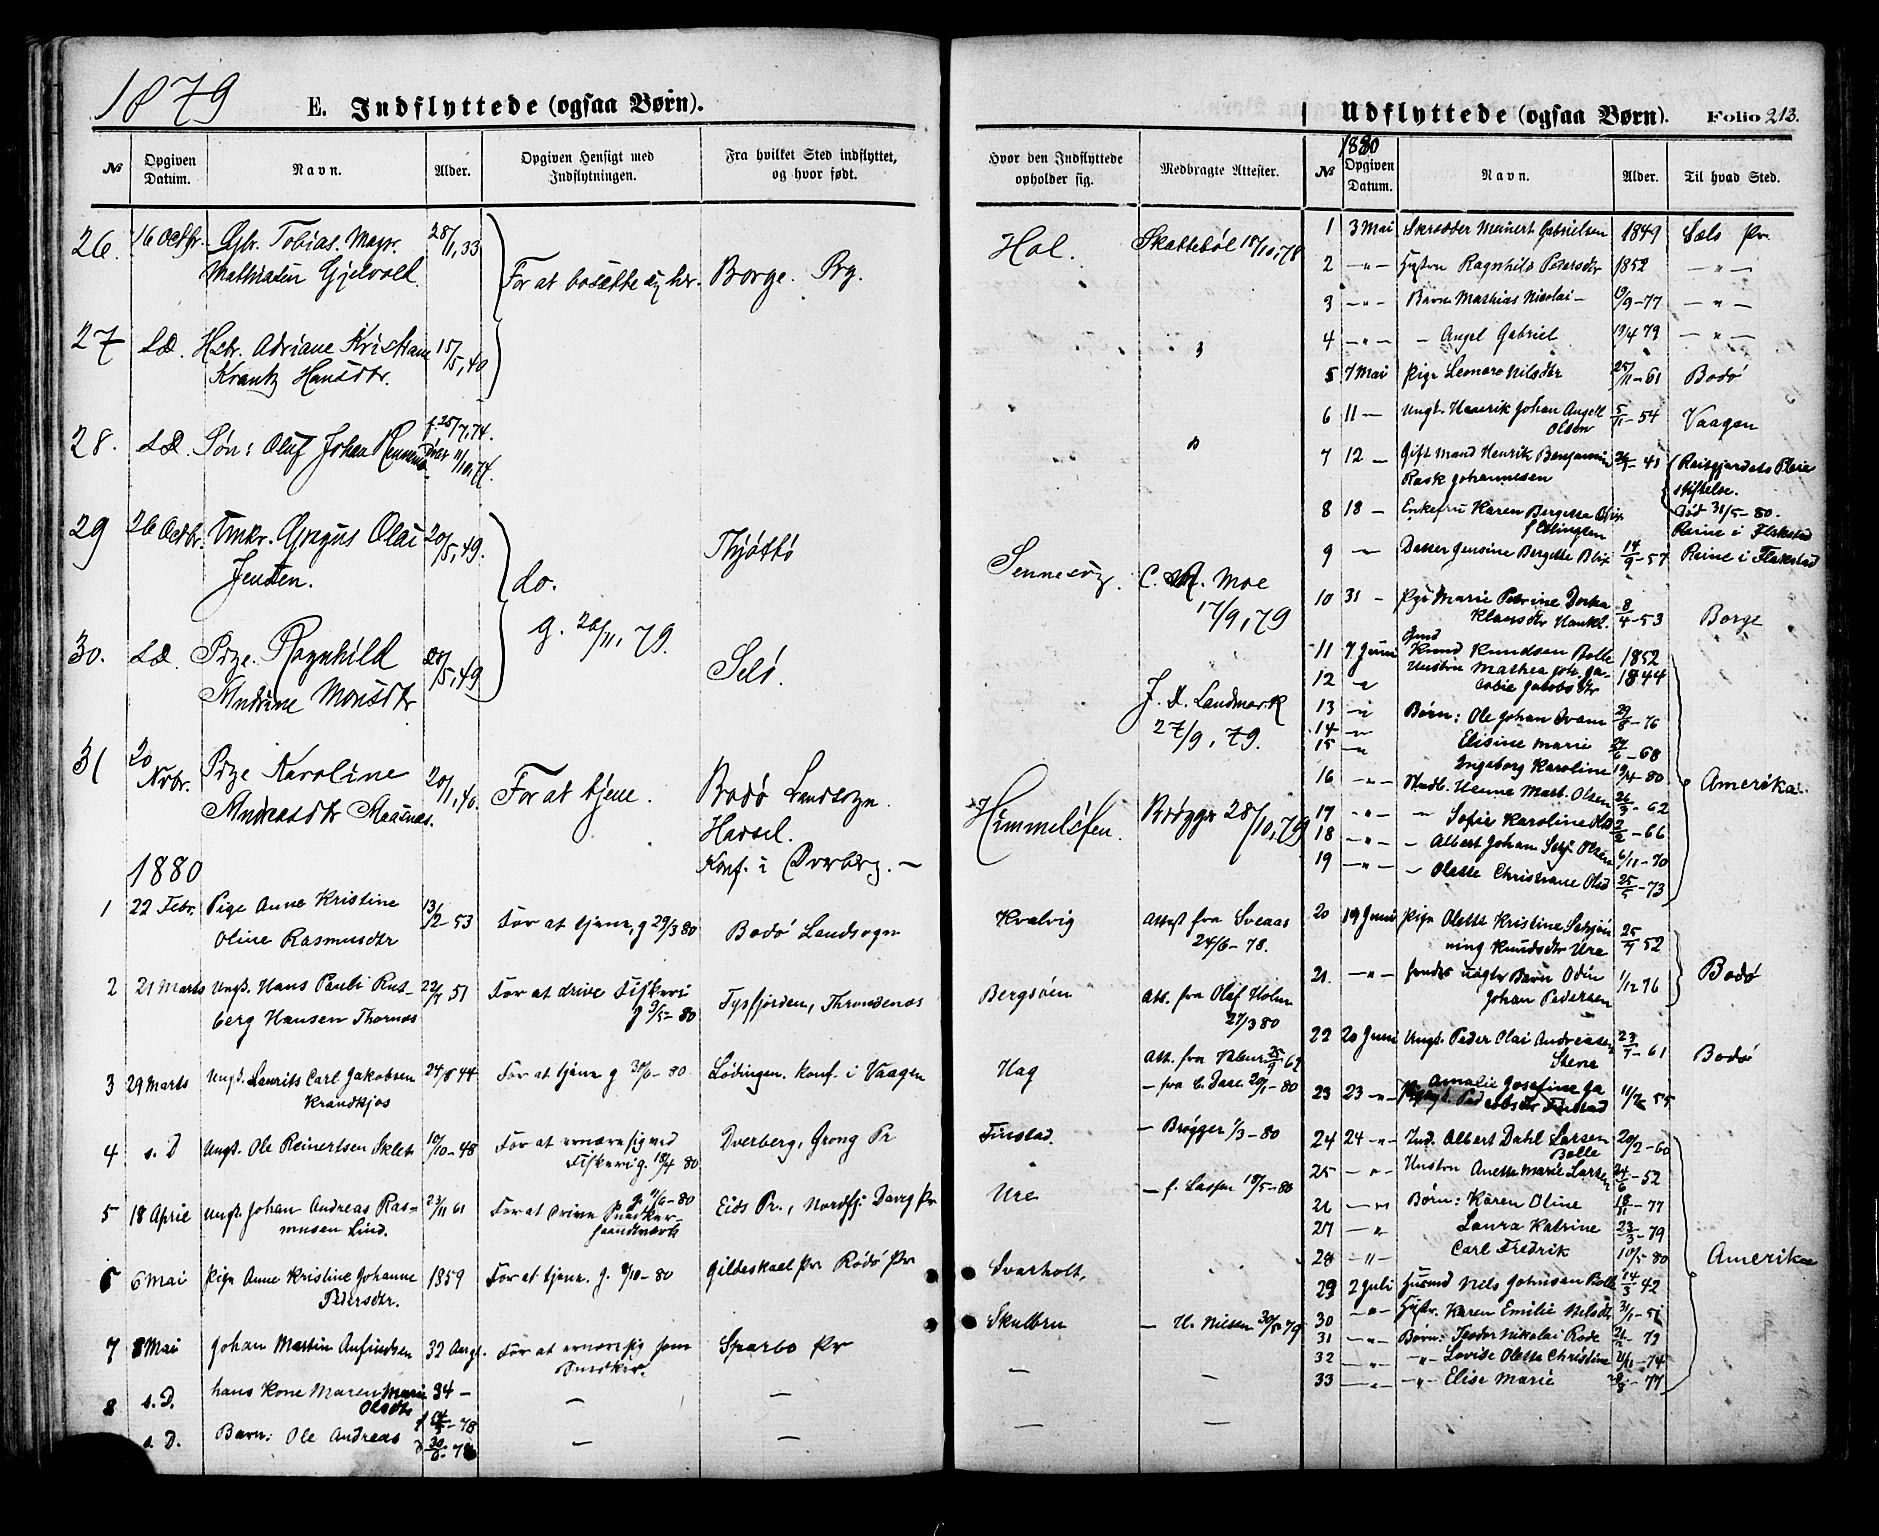 1879
E. Indflyttede (ogsaa Børn).
№ Opgiven Datum. Navn. Alder. Opgiven Hensigt med Indflytningen. Fra hvilket Sted indflyttet, og hvor født.
26. 16 Octbr. Gbr. Tobias. Mayer. 28/1, 33
Mathiasen Gjelvold. For at bosætte sig her. Borge. Prg.
27 s.D. Hstr. Adriane Kristiane 15/5, 40
Krantz Hansdtr.
28. s.D. Søn: Oluf Johan f. 25/7, 74.
29 26 Octbr. Olai 20/5, 49. Thjøttø
Jensen. do.
g. 26/11, 79.
30. s.D. Pige. Ragnhild 20/5, 49 Selø.
Andrine Monsdtr
31 20 Nvbr. Pige Karoline 20/1, 40. For at tjene. Bodø Landsogn.
Andreasdtr Hassel.
Konf. i Dverberg. —
1880
1 22 Febr. Pige Anne Kristine 13/12-53 For at tjene, g 29/3 80 Bodø Landsogn
Oline Rasmusdtr
2 21 Marts Ungk. Hans Pauli Rus- 22/7 51 For at drive Fiskeri Tysfjorden, Throndenæs
berg Hansen Thornæs g 9/5-80
3 29 Marts Ungk. Laurits Carl Jakobsen 24/8 44 For at tjene g 30/6-80. Lødingen. konf. i Vaagen
4 s. D Ungk. Ole Reinertsen Sklet 10/10-48 For at ernære sig ved Dverberg, Grong Pr
Fiskeri g. 18/4 80
5 18 April Ungk. Johan Andreas Ras- 23/11 61 g. 11/6-80 Eids Pr., Nordfj.
musen Lind. For at drive
6 6 Mai Pige Anne Kristine Johanne 1859 For at tjene. g. 8/10-80 Gildeskaal Pr. Rødø Pr
Pedersdtr.
7 8 Mai Johan Martin Anfindsen 32 Aar For at ernære sig som Sparbo Pr
Snedker.
8 s.D. hans Kone Maren Marie 34 — — —
Olsdtr
s. D. Barn: Ole Andreas — —
Hvor den Indflyttede opholder sig. Medbragte Attester.
Hol. Skattebøl 18/10, 78
Sennesvig. C. Moe
17/9, 79
J. Landmark
27/9, 79.
Himmelsten. Brøgger 28/10, 79
Kvalvig Attest fra Sveaas
24/6-78.
Bergsøen Att. fra Olaf Holm
27/3 80
Hag Att. fra
— fra C. Daae 20/1-80
Finstad. — Brøgger 1/3-80
Ure — f. Lassen 18/5-80
Svarholt,
Skulbru — U. Nielsen 30/5 79
— —
— —
Udflyttede (ogsaa Børn). Folio 213.
1880
№ Opgiven Datum. Navn. Alder. Til hvad Sted.
1 3 Mai Skrædder Meinert Gabrielsen 1849 Sels Pr.
2 — " — Hustru Ragnhild Pedersdtr 1852 — " —
3 — " — Barn Mathias Nicolai — 19/9-77 — " —
4 — " — — Angel Gabriel 19/4 79 — " —
5 7 Mai Pige Leonore Nilsdtr 25/11-61 Bodø
6 11 — Ungk. Henrik Johan Angell 5/11-54 Vaagan
Olsen
7 12 — Gift Mand Henrik Benjamin 41 Reitgjærdets Pleie
Rask Johannesen stiftelse.
Død 31/5-80.
8 18 — Enkefru Karen Bergette Blix Reine i Flakstad
9 — " Datter Jensine Bergette Blix 14/9-57 Reine i Flakstad
10 31 — Pige Marie Petrine Dorthea 8/4-53 Borge
Klausdtr
11 7 Juni Knud Knudsen Bolle 1852
12 — " Hustru Mathea Joh. Ja- 1844
cobie Jakobsdtr
13 — " Børn: Ole Johan 29/8-76
14 — " Elisine Marie 68
15 — " Ingeborg Karoline 19/4-80
16 — " — Hanne Mart. Olsen 62 Amerika
17 — " — — Sofie Karoline Olsd 66
18 — " — — Albert Johan Olsen 6/11-70
19 — " — — Olette Christiane Olsd 25/5-73
20 19 Juni Pige Olette Kristine 25/7 52
ning Knudsdtr Ure
21. — " — hendes uægte Barn Odin 1/12 76 Bodø
Johan Pedersen
22 20 Juni Ungk. Peder Olai Andreasen 23/7-61 Bodø
Stene
23 23 — " — Amalie Josefine Ja 11/2-55
cobsdtr Finstad
24 24 — " — Ind. Albert Dahl Larsen 20/2-60
Bolle
25 — " — Hustru Anette Marie Larsen 24/6-52
26 — " Børn: Karen Oline 18/11-77
27 — " Laura Katrine 23/3-79
28 — " Carl Fredrik 10/5-80 Amerika
29 2 Juli Husmd Nels Johnsen Bolle 14/3 42
30 — " — Hstr. Karen Emilie Nelsdtr
31 — " — Børn: Teodor Nikolai Rode
32 — " — " — Lovise Olette Christine 74
33 — " — " — Elise Marie 77